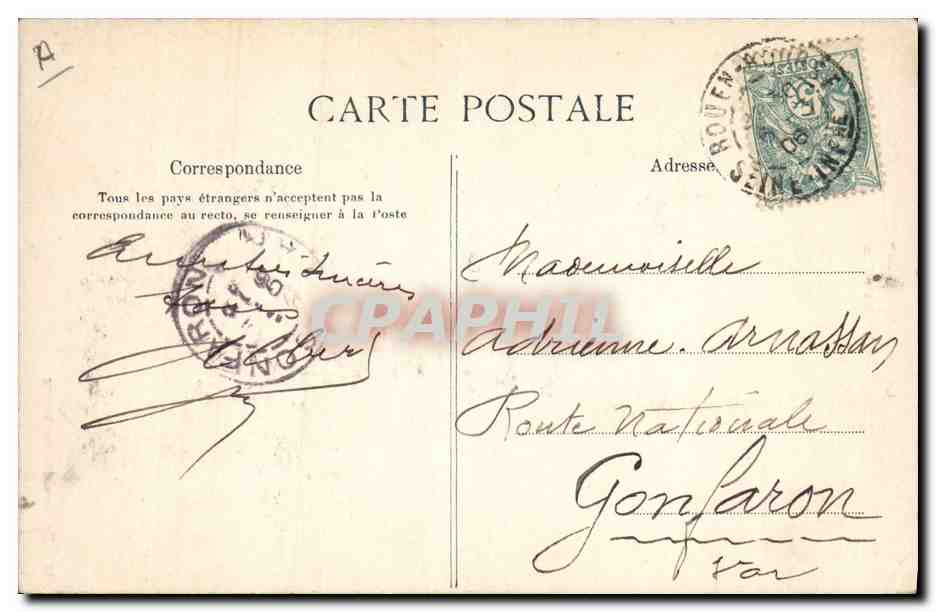 A
CARTE POSTALE
Correspondance
Tous les pays étrangers n'acceptent pas la
correspondance au recto, se renseigner à la Poste
Adresse
ROUEN-BOURSE
06
SEINE-INFRE
5
GONFARON
06
CPAPHIL
Mademoiselle
Adrienne. Arnassan
Route Nationale
Gonfaron
Var